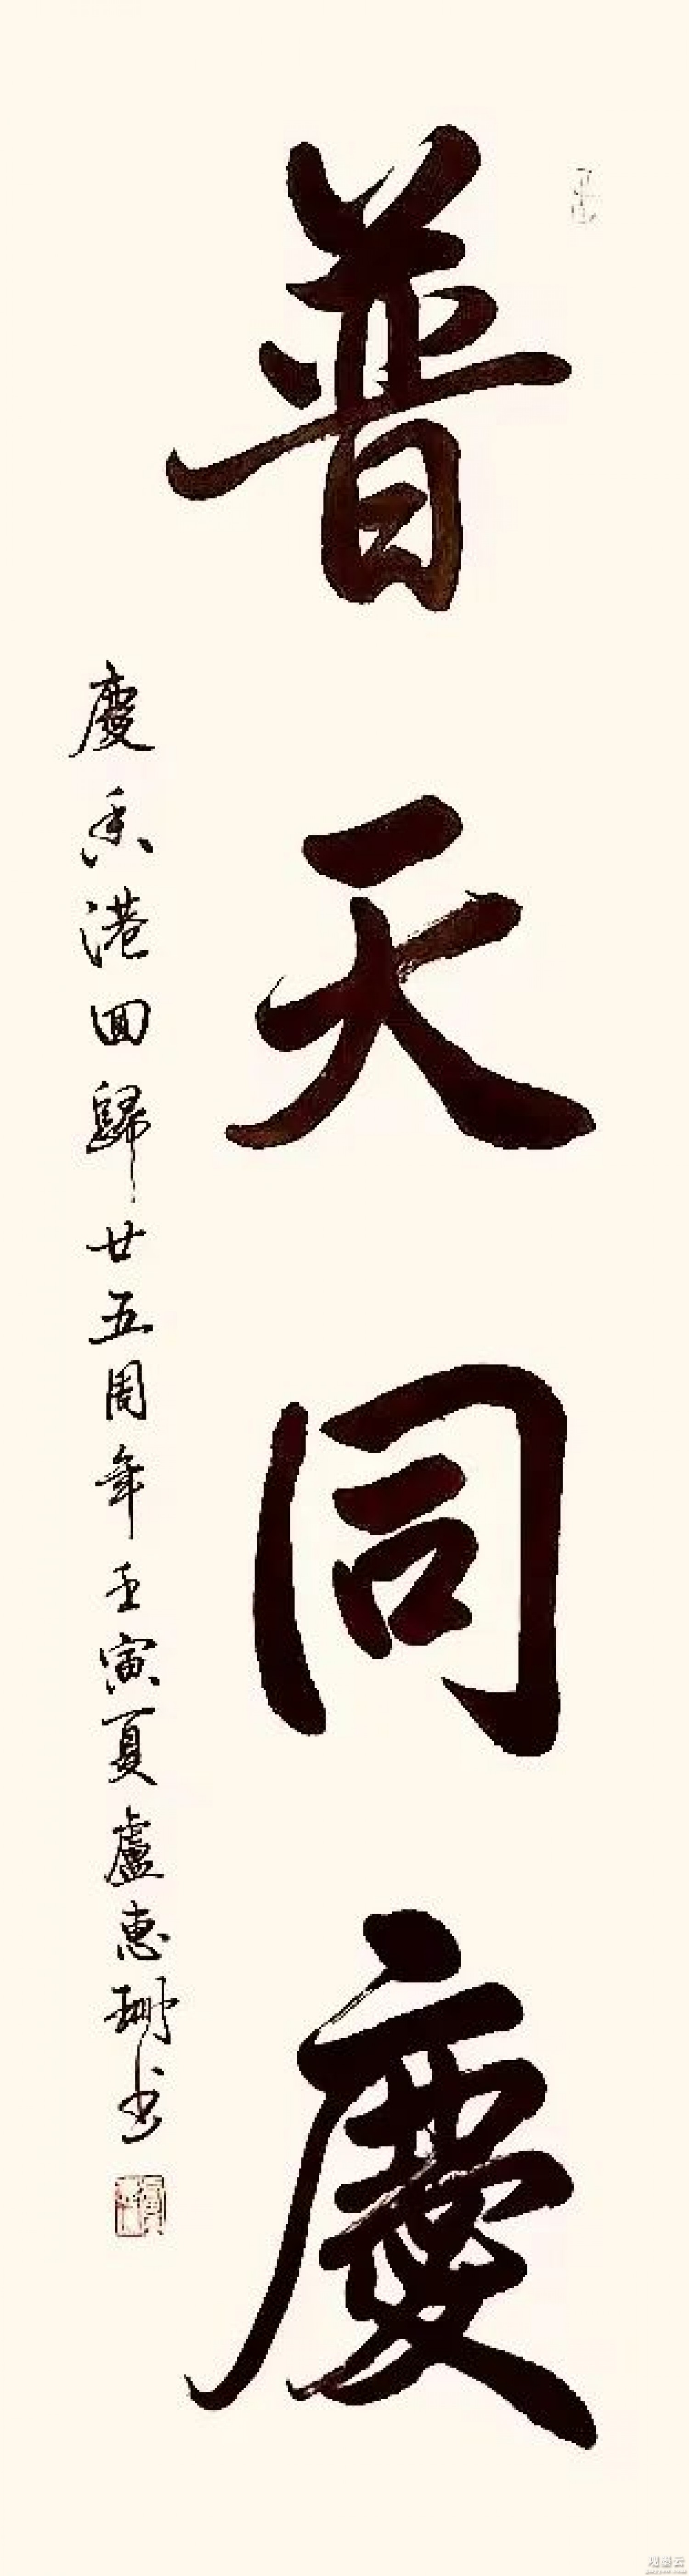 普天同慶
慶香港回歸廿五周年壬寅夏盧惠珊书
观墨云